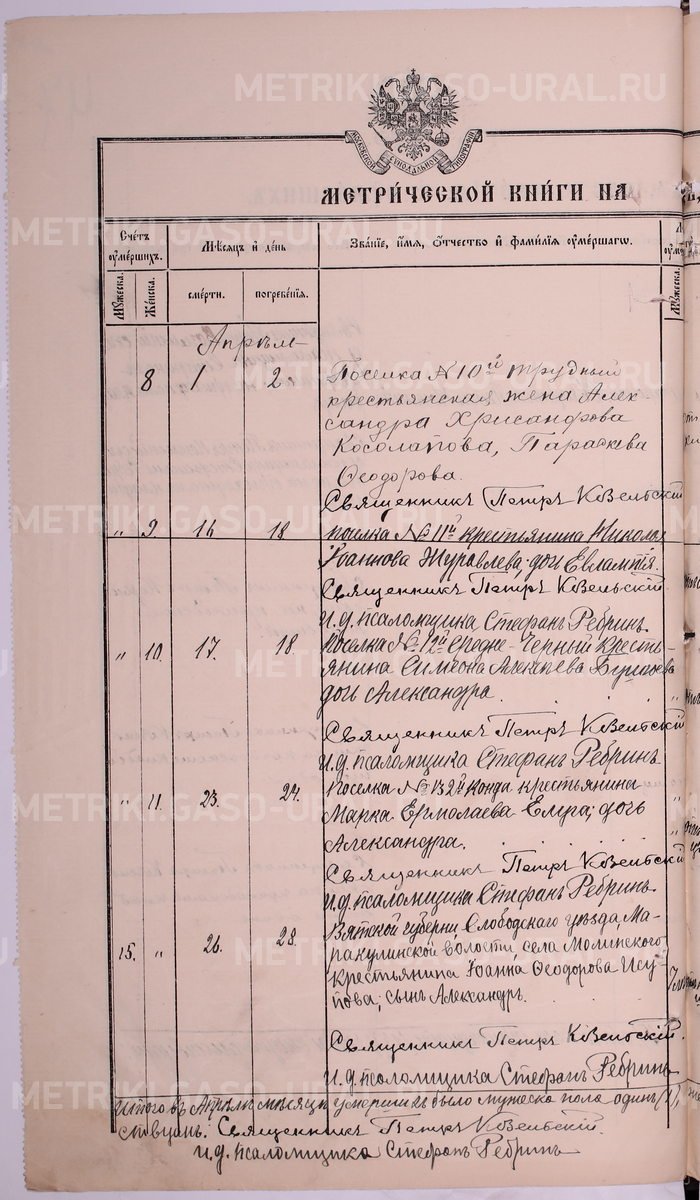 METRIKI.GASO-URAL.RU
МОСКОВСКОЙ СѴНОДАЛЬНОЙ ТИПОГРАФІИ
МЕТРИ́ЧЕСКОЙ КНИ́ГИ НА
Счетъ ᲂу҆ме́ршихъ.
Мѣсяцъ и҆ де́нь
Зва́нїе, и҆́мя, ѻ҆́тчество и҆ фами́лїя ᲂу҆ме́ршагѡ.
Мꙋ́жеска.
Же́нска.
сме́рти.
погребе́нїя.
Апрѣль
8 1 2. Поселка №10й Трудный
крестьянская жена Алек
сандра Хрисанфова
Косолапова, Параскева
Ѳеодорова.
Священникъ Петръ Козельскій
„ 9. 16 18 поселка № 11й крестьянина Николая
Іоаннова Журавлева, дочь Евлампія.
Священникъ Петръ Козельскій.
и.д. псаломщика Стефанъ Ребринъ.
„ 10. 17. 18 Поселка № 12й Средне-Черный кресть-
янина Симеона Алексѣева
дочь Александра.
Священникъ Петръ Козельскій
и.д. псаломщика Стефанъ Ребринъ
„ 11. 23. 24. Поселка № 13 2й Конда крестьянина
Марка Ермолаева дочь
Александра.
Священникъ Петръ Козельскій
и.д. псаломщика Стефанъ Ребринъ.
15. „ 26. 28. Вятской губерніи, Слободскаго уѣзда,
волости, села
крестьянина Іоанна Ѳеодорова Ису
пова; сынъ Александръ.
Священникъ Петръ Козельскій.
и.д. псаломщика Стефанъ Ребринъ
Итого въ Апрѣлѣ мѣсяцѣ умершихъ было мужеска пола одинъ (1),
Священникъ Петръ Козельскій.
и.д. псаломщика Стефанъ Ребринъ